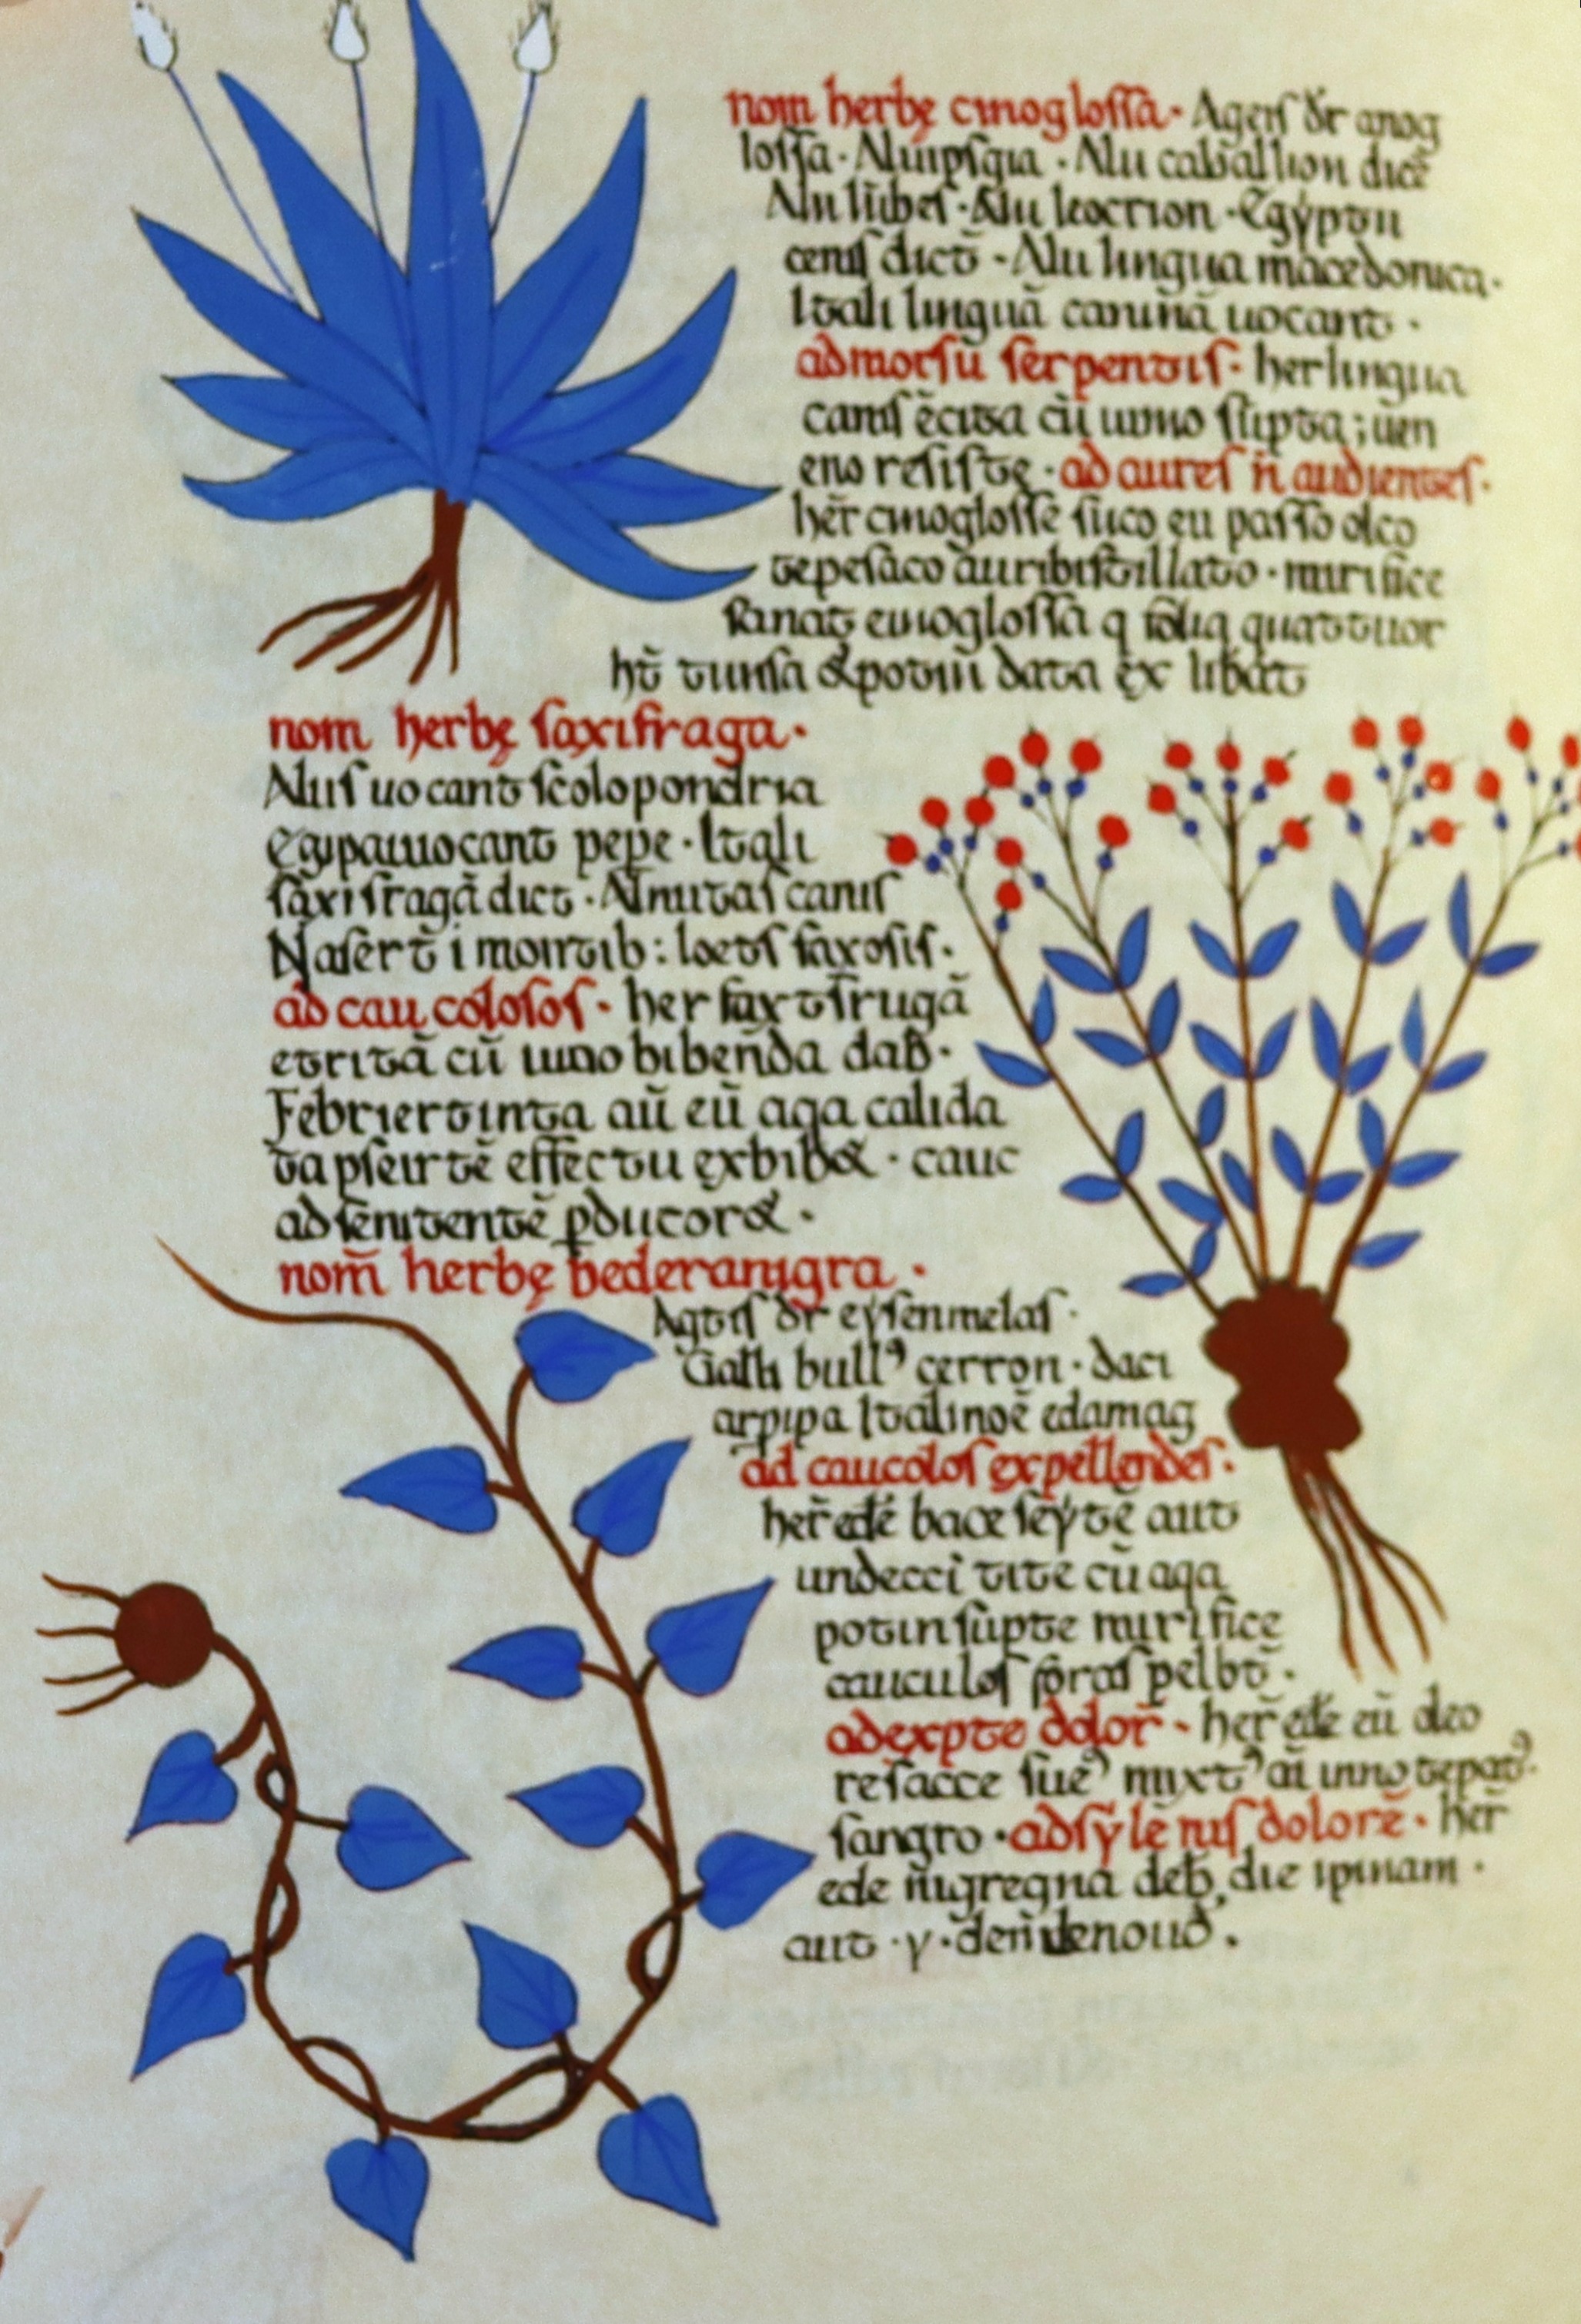 nom herbę cinoglossā · Ageis dr̄ anog
lossa · Alu ipsqia · Alii caballion dicē
Alii lubes · Alii leocrion · Egyptii
cenis dict̄ · Alii lingua macedonica ·
Itali linguā caninā uocant ·
ad morsū serpentis · her lingua
canis ēcita cū uino sūpta ; uen
eno resiste · ad aures n̄ audientes ·
her̄ cinoglosse suco cu passo oleo
tepefaco auribistillato · mirifice
sanat̨ cinoglossā q folia quattuor
ht̄ tunsa & potūi data ex libat
nom herbę saxifraga ·
Alus uocant scolopondria
Egipaiiuocant pepe · Itali
saxifragā dict · Alnutas canis
Nasert̄ i montib : locis saxosis ·
ad cau colosos · her saxtfrugā
etritā cū uino bibenda dab ·
Febrier tinta aū cū aqa calida
ta pseirtē effectu exbib& · cauc
ad senitentē p̱ducor& ·
nom̄ herbę bederanigra ·
Agtis dr eysenmelas ·
Galli bull⁹ cerron · daci
arpipa Italinoē edamag
ad caucolos expellendes ·
her̄ edē bace seytē aut
undeccī tite cū aqa
potin sūpte mirifice
cauculos foras pelbt̄ ·
ad expte dolor̄ · her̄ edē cū oleo
resacce sue⁹ mixt⁹ aū uino tepat⁹
sangro · ad sylē nis dolorē · her̄
ede nigregna deb, die ipinam ·
aut · y · den denoud .